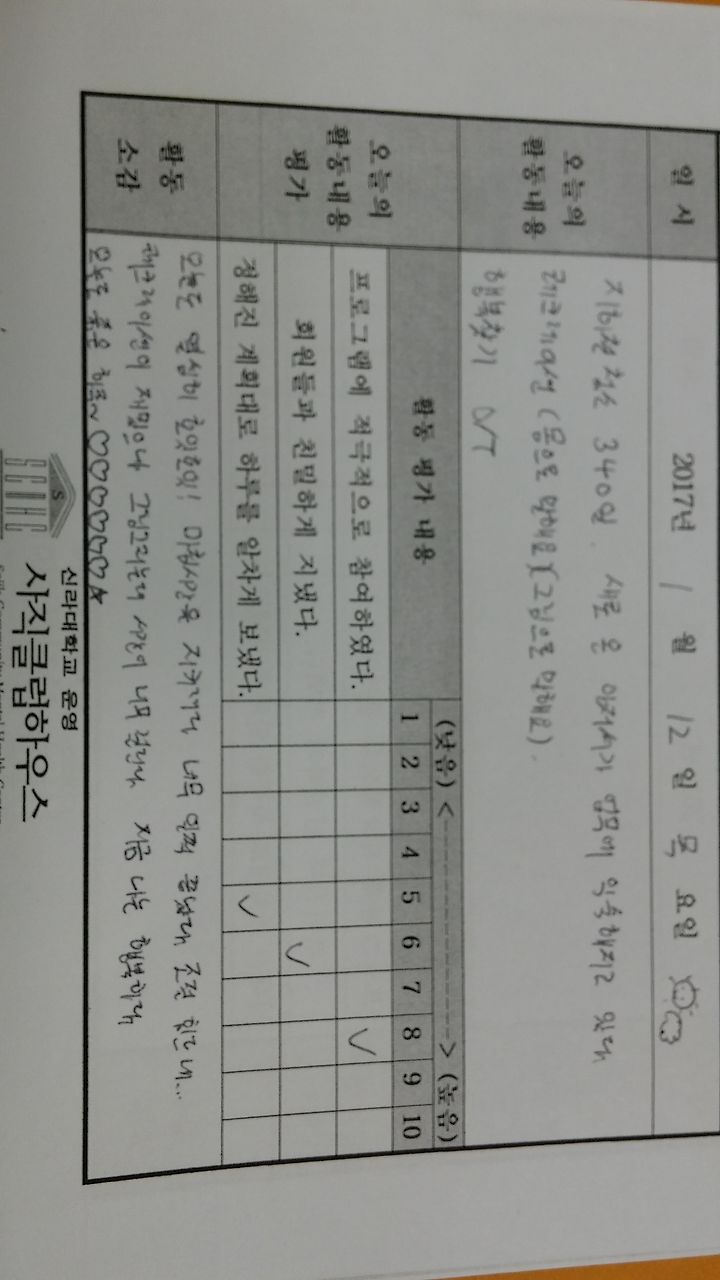 일시
2017년 1 월 12 일 목 요일
오늘의
활동내용
지하철 청소 340일. 새로 온 이저씨가 업무에 익숙해지고 있다
레크레이션 (몸으로 말해요)(그림으로 말해요).
행복찾기 O/T
오늘의
활동내용
평가
활동 평가 내용
(낮음) <--------------> (높음)
1 2 3 4 5 6 7 8 9 10
프로그램에 적극적으로 참여하였다.
회원들과 친밀하게 지냈다.
정해진 계획대로 하루를 알차게 보냈다.
활동
소감
오늘도 열심히 훗잇훗잇! 시간을 지키기라 너무 일찍 끝났다 조금 힘드네...
레크레이션이 재밌으나 그림그리는데 너무 지금 나는 행복하다
오늘도 좋은 하루~ ♡♡♡♡♡♡☆
신라대학교 운영
사직클럽하우스
SCMHC